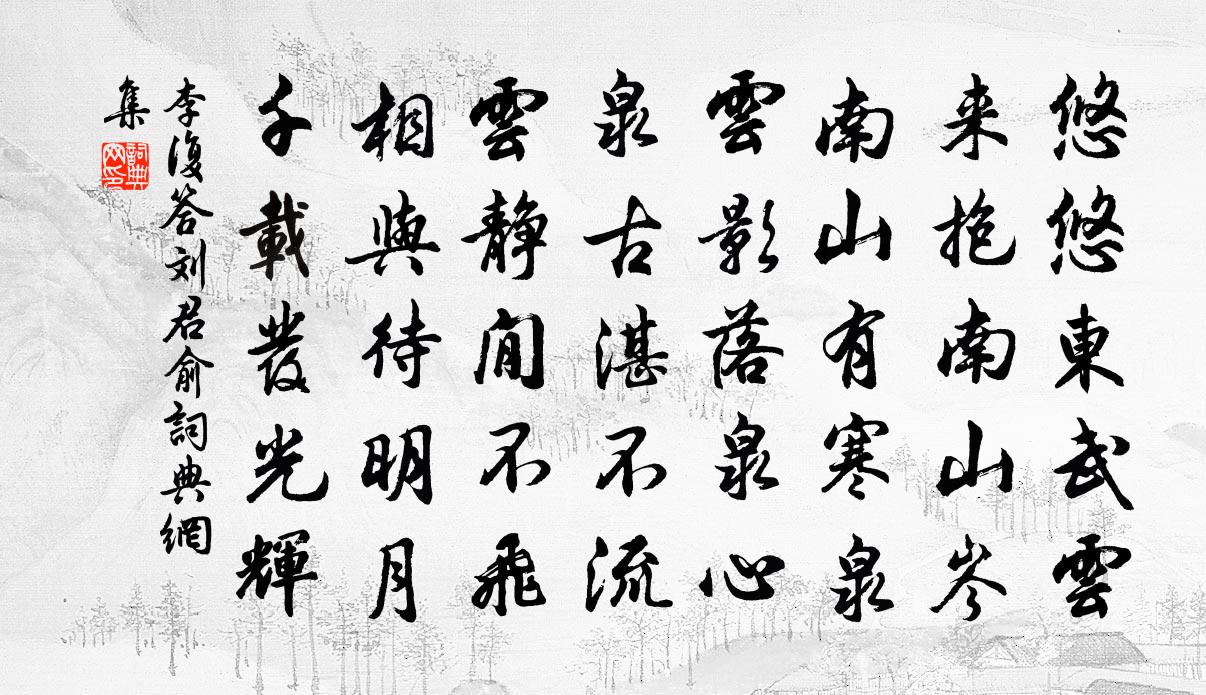 悠悠東武雲
来抱南山岑
南山有寒泉
雲影落泉心
泉古湛不流
雲静閒不飛
相與待明月
千載發光輝
李復答刘君俞詞典網
集
詞典网印